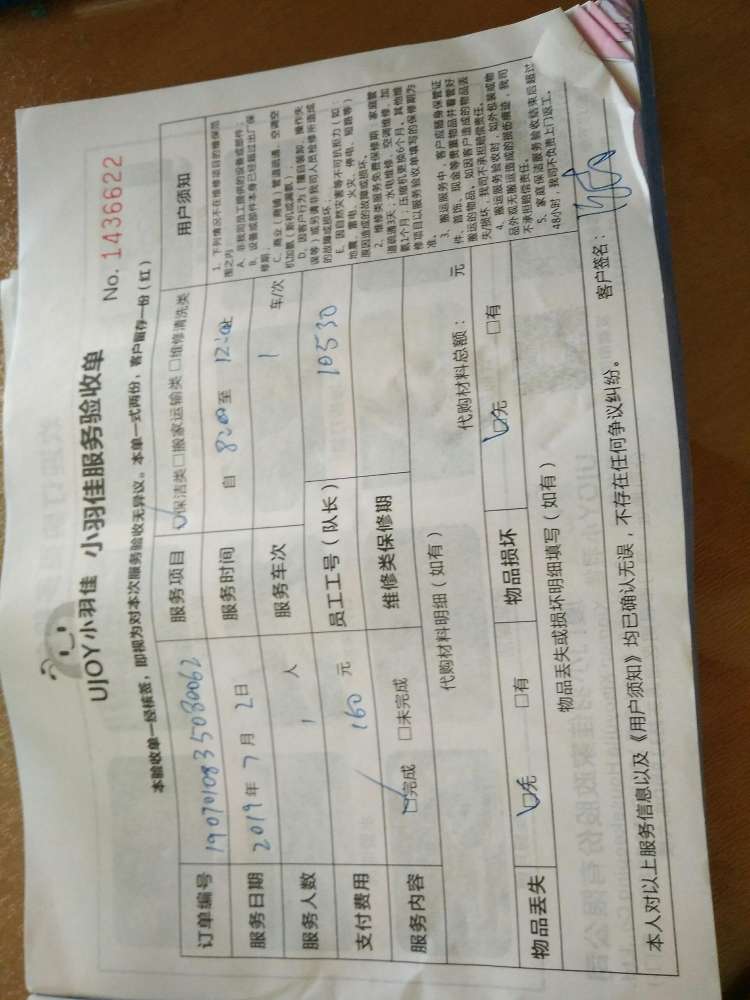 UJOY小羽佳 小羽佳服务验收单
No. 1436622
本验收单一经核签，即视为对本次服务验收无异议。本单一式两份，客户留存一份（红）
订单编号 1907010835080062 服务项目 ☑保洁类□搬家运输类□维修清洗类
服务日期 2019年7月2日 服务时间 自 8:00 至 12:00止
服务人数 1 人 服务车次 1 车/次
支付费用 160 元 员工工号（队长） 10530
服务内容 ☑完成 □未完成 维修类保修期
代购材料明细（如有） 代购材料总额： 元
物品丢失 ☑无 □有 物品损坏 ☑无 □有
物品丢失或损坏明细填写（如有）
用户须知
1、下列情况不在维修项目的维保范
围之内
A、非我司员工提供的设备或部件；
B、设备或部件本身已经超过出厂保
修期；
C、商业（商铺）管道疏通、空调空
机加氨（新机或漏氨）；
D、因客户行为（擅自装卸、操作失
误等）或另请非我司人员检修所造成
的故障或损坏；
E、因自然灾害等不可抗拒力（如：
地震、雷电、火灾、停电、短路等）
原因造成的故障或损坏。
2、维修类服务免费保修期：家庭管
道疏通3天；水电维修、空调维修、加
氨1个月；压缩机更换6个月。其他维
修项目以服务验收单填写的保修期为
准。
3、搬运服务中，客户应随身保管证
件、首饰、现金等贵重物品并看管好
搬运的物品。如因客户造成的物品丢
失/损坏，我司不承担赔偿责任。
4、搬运服务验收时，如外包装或物
品外观无搬运造成的损伤痕迹，我司
不承担赔偿责任。
5、家庭保洁服务验收结束后超过
48小时，我司不负责上门返工。
本人对以上服务信息以及《用户须知》均已确认无误，不存在任何争议纠纷。 客户签名：